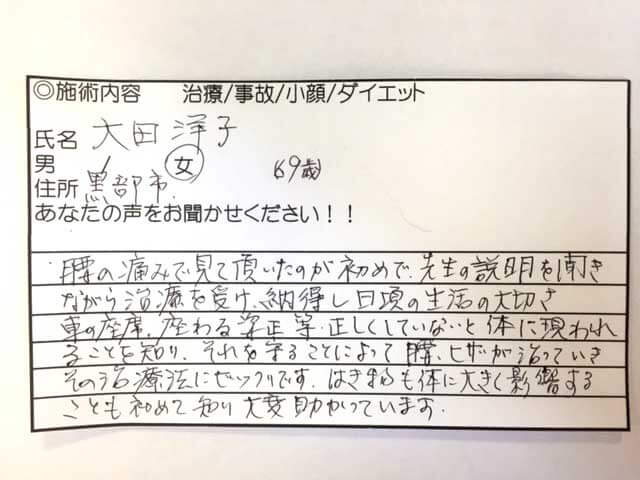 ◎施術内容　治療/事故/小顔/ダイエット
氏名 大田 洋子
男 女 69歳
住所 黒部市.
あなたの声をお聞かせください！！
腰の痛みで見て頂いたのが初めで、先生の説明を聞き
ながら治療を受け、納得し日頃の生活の大切さ
車の座席、座わる 正 等 正しくしていないと体に現われ
ることを知り、それを守ることによって腰、ヒザが治っていき
その治療法にビックリです. はき物も体に大きく影響する
ことも初めて知り大変助かっています.